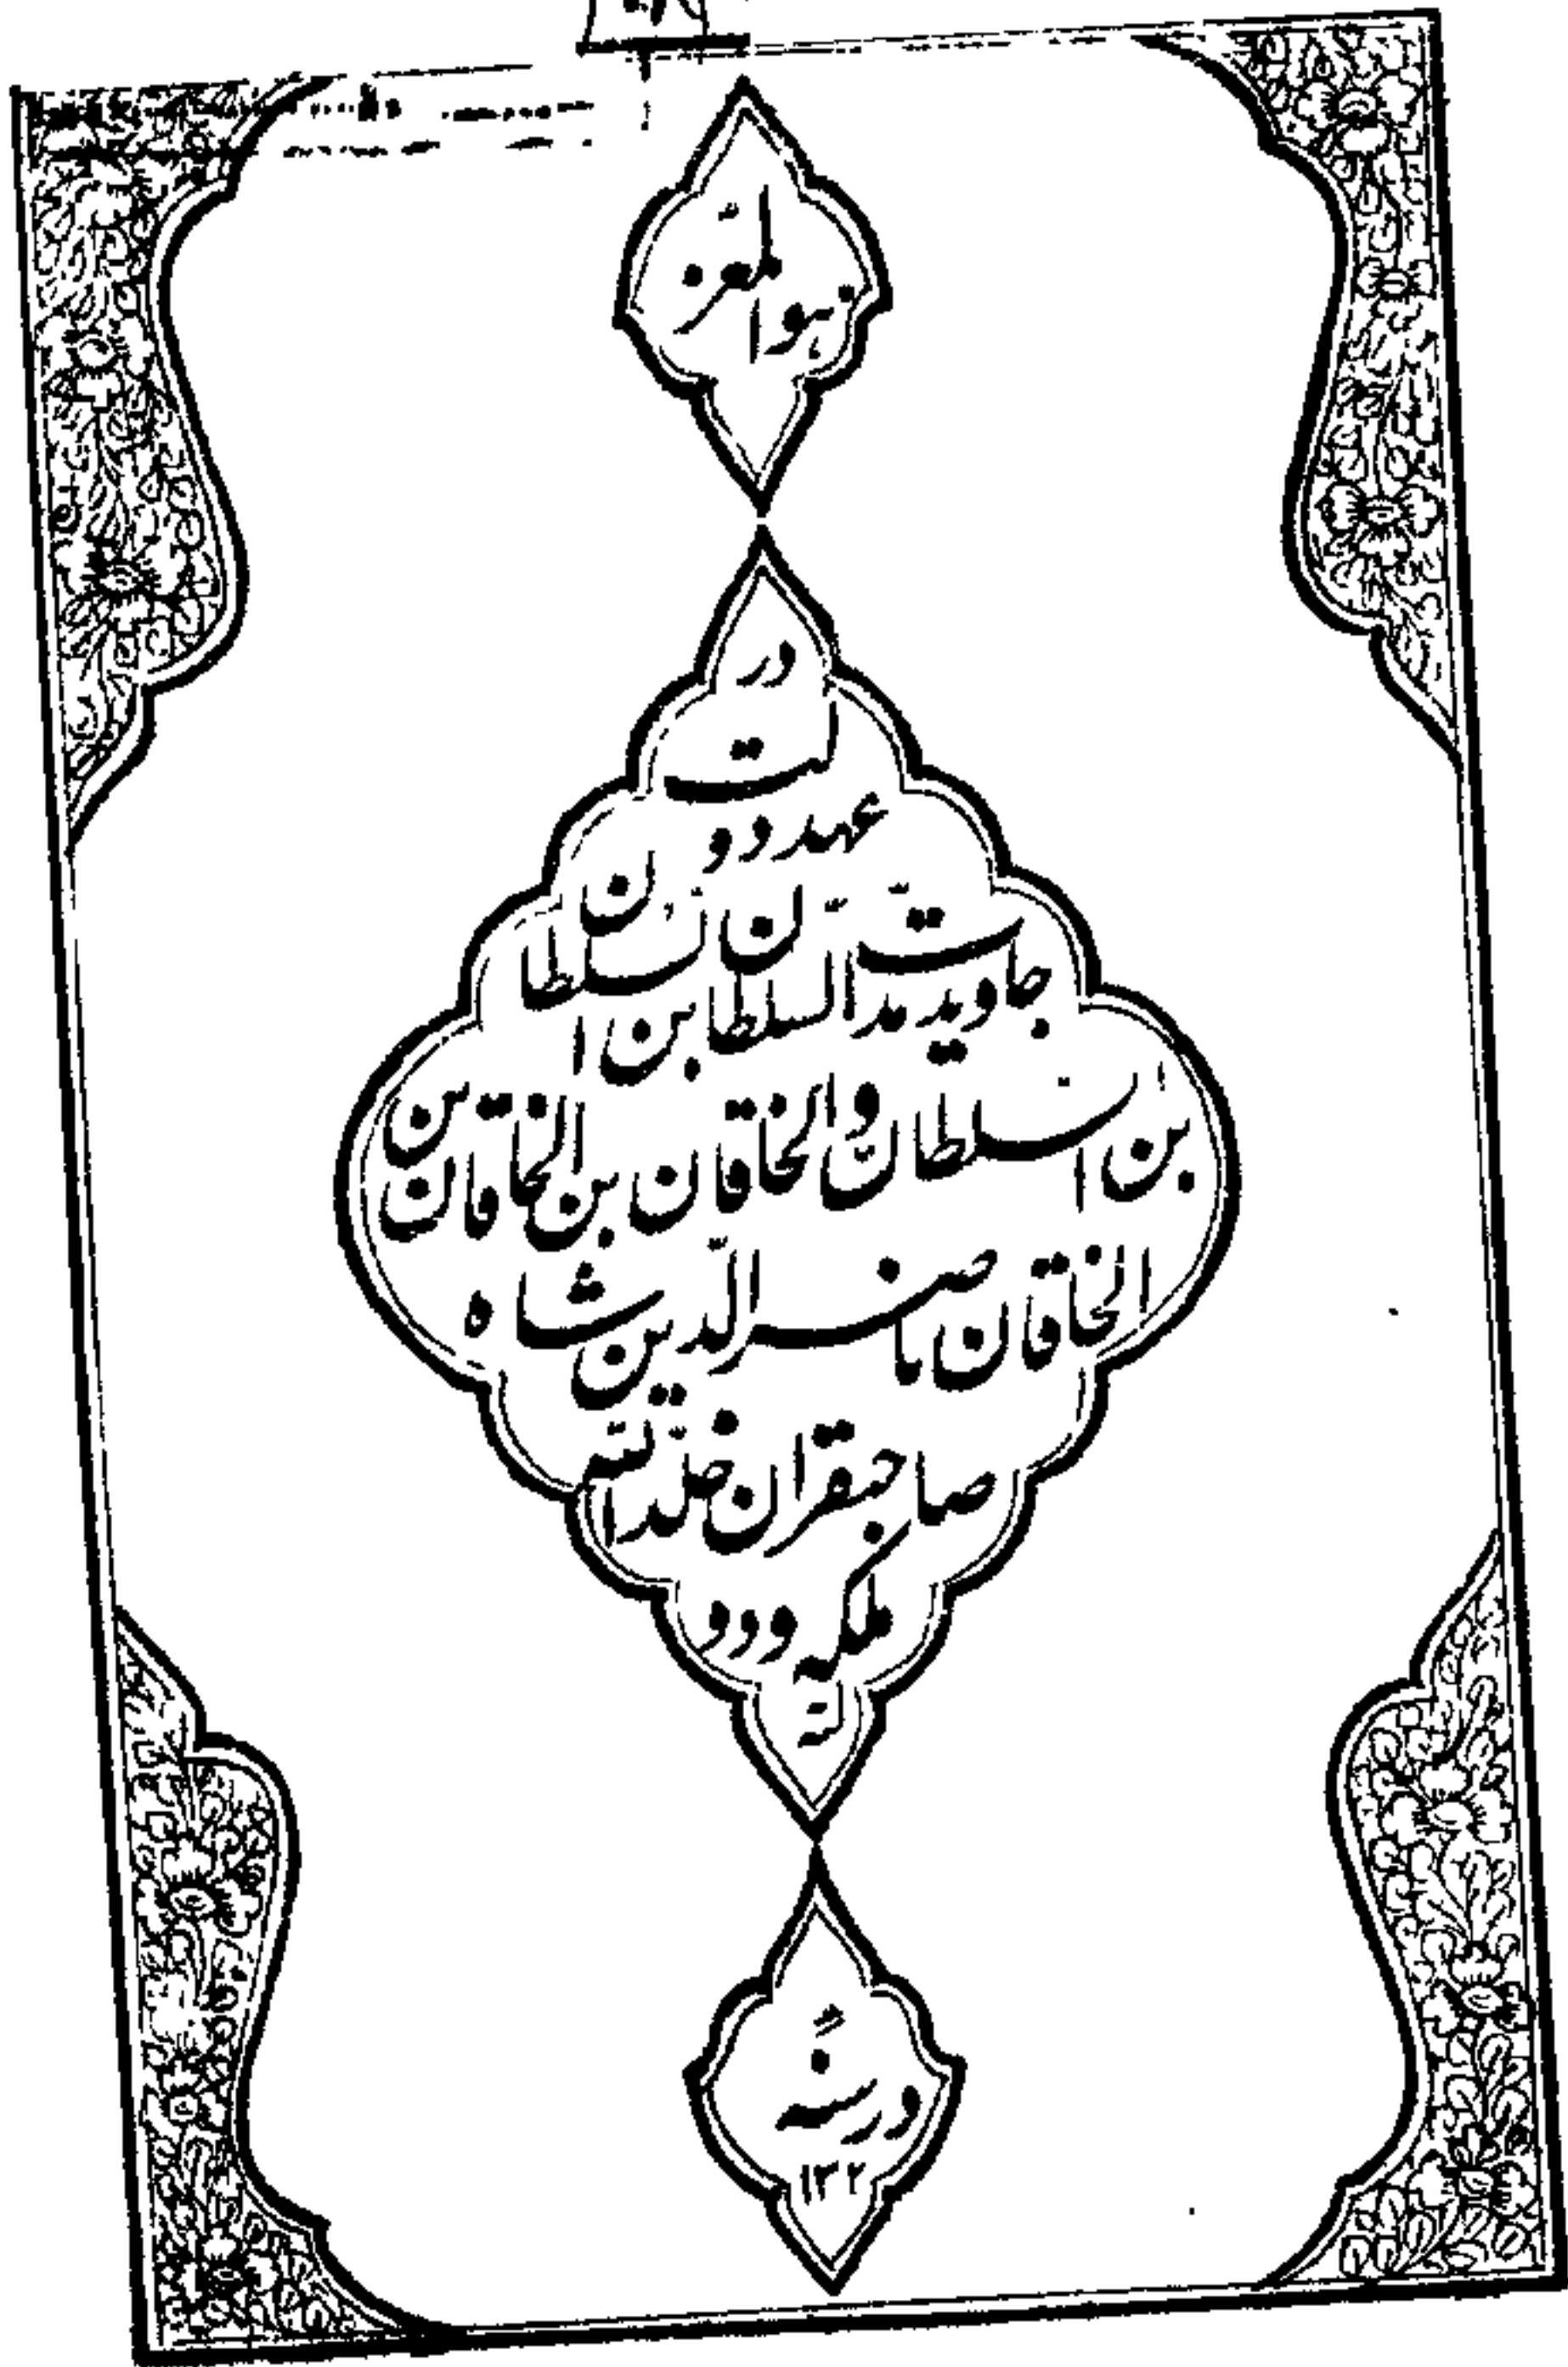 هو المعز
در
عهد دولت
جاوید مدت السلطان بن السلطان
بن السلطان والخاقان بن الخاقان بن
الخاقان ناصرالدین شاه
صاحبقران خلد الله
ملکه و دو
لته
در سنه
۱۳۲